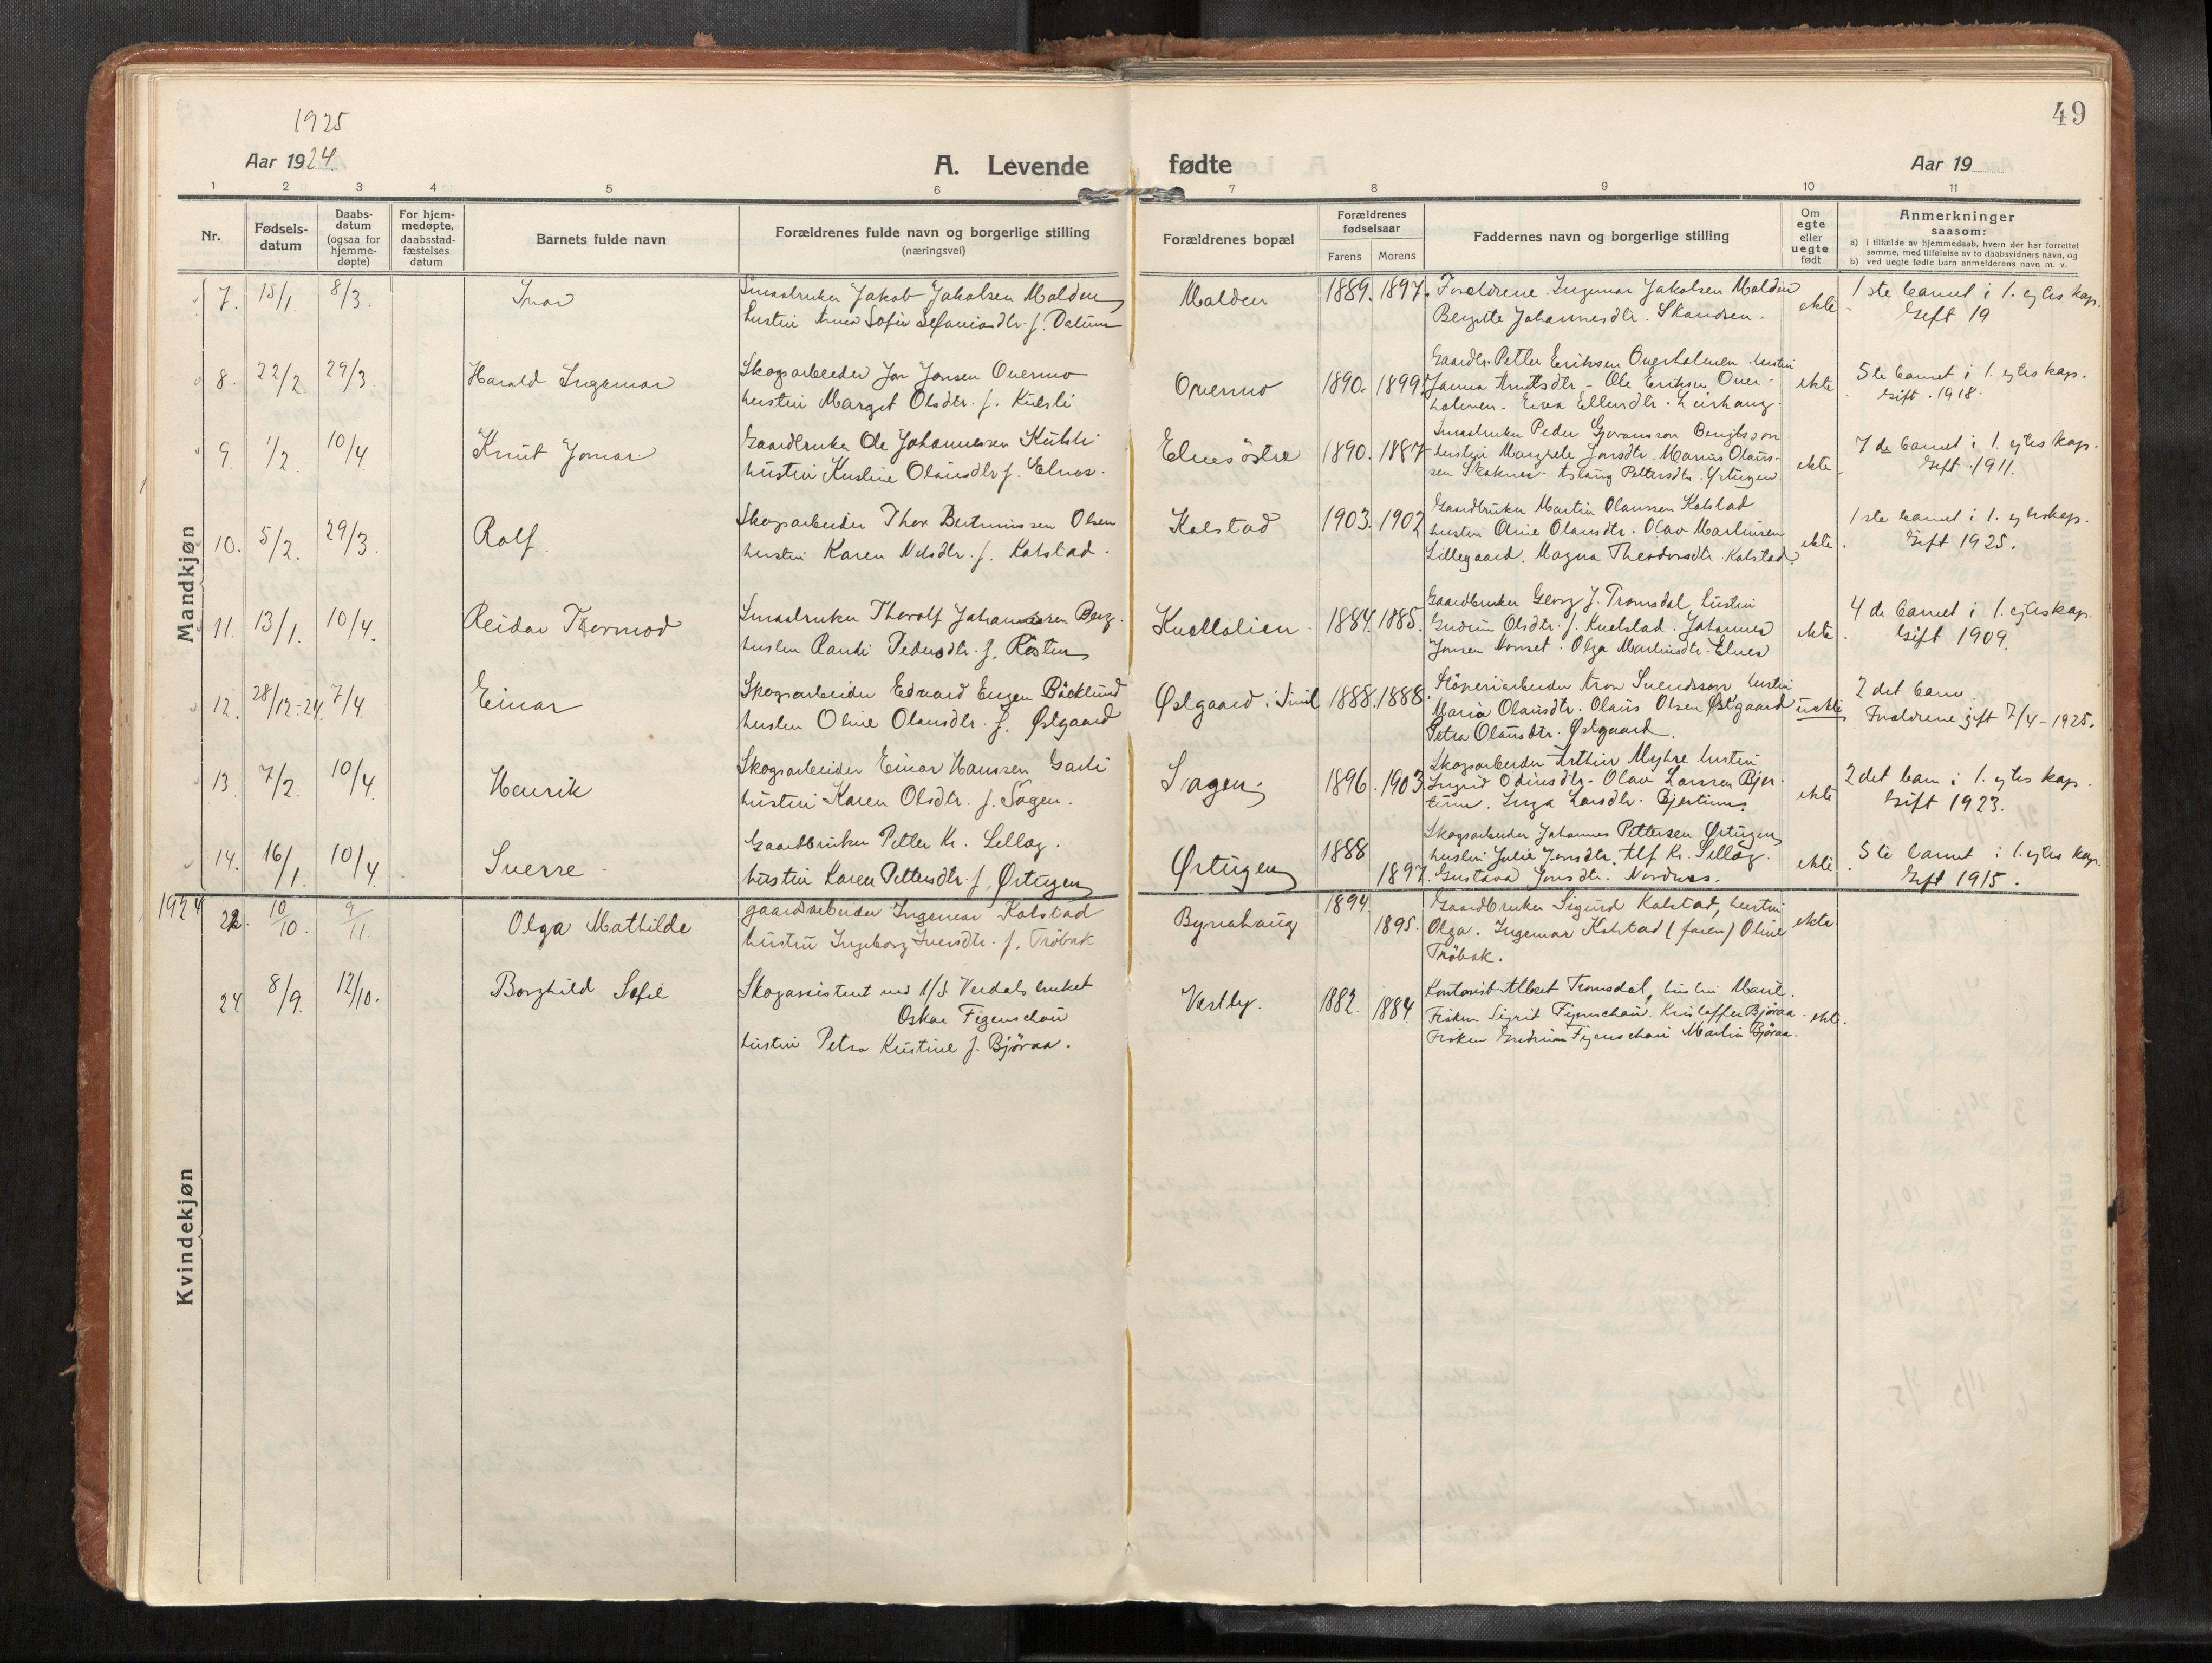 49
1925
Aar 1924
A. Levende fødte
Aar 19
1 2 3 4 5 6 7 8 9 10 11
Nr.
Fødsels-
datum
Daabs-
datum
(ogsaa for
hjemme-
døpte)
For hjem-
medøpte,
daabsstad-
fæstelses
datum
Barnets fulde navn
Forældrenes fulde navn og borgerlige stilling
(næringsvei)
Forældrenes bopæl
Forældrenes
fødselsaar
Farens Morens
Faddernes navn og borgerlige stilling
Om
egte
eller
uegte
født
Anmerkninger
saasom:
a) i tilfælde av hjemmedaab, hvem der har forrettet
samme, med tilføielse av to daabsvidners navn, og
b) ved uegte fødte barn anmelderens navn m. v.
Mandkjøn
7. 15/1. 8/3.
Smaabruker Jakob Jakobsen Malden
hustru Anna Sofie
Malden
1889. 1897.
Foreldrene. Ingemar Jakobsen Malden
Bergitte Johannesdtr. Skansen.
ekte
1ste barnet i 1. egteskap.
Gift 19
8. 22/2. 29/3.
Harald Ingemar
Skogsarbeider Jon Jonsen Overmo
hustru Marget Olsdtr. f. Kulsli
Overmo
1890. 1899.
Gaardbr. Petter Eriksen Overholmen hustru
Janna Arntsdtr - Ole Eriksen Over-
holmen. Eva Ellensdtr. Leirhaug.
ekte
5te barnet i 1. egteskap.
Gift. 1918.
9. 1/2. 10/4.
Knut Jomar
Gaardbruker Ole Johannessen Kulsli
hustru Kristine Olausdtr f. Elnes.
Elnes østre
1890. 1887
Smaabruker Peder Gøransson Bengtsson
hustru Margrete Jonsdtr. Marius Olaus-
sen Skaknes. Aslaug Pettersdtr. Ørtugen.
ekte.
7de barnet i 1. egteskap.
Gift. 1911.
10. 5/2. 29/3.
Rolf.
Skogsarbeider Thor Berntinussen Olsen
hustru Karen Nilsdtr. f. Kolstad.
Kolstad
1903. 1902
Gaardbruker Martin Olaussen Kolstad
hustru Oline Olausdtr. Olav Martinsen
Lillegaard. Magna Theodorsdtr. Kolstad.
ekte.
1ste barnet i 1. egteskap.
Gift 1925.
11. 13/1. 10/4.
Reidar Thormod
Smaabruker Thoralf Johannessen Berg.
hustru Randi Pedersdtr. f. Røsten
1884. 1885.
Gaardbruker Georg J. Tromsdal, hustru
Gudrun Olsdtr. f. Kvelstad. Johannes
Jonsen Nonset. Olga Martinsdtr. Elnes
ekte.
4de barnet i 1. egteskap.
Gift 1909.
12. 28/12-24. 7/4.
Einar
Skogsarbeider Edvard Eugen Bäcklund
hustru Oline Olausdtr. f. Østgaard
Østgaard
1888. 1888.
Støperiarbeider Aron Svendsson hustru
Maria Olausdtr. Olaus Olsen Østgaard
Petra Olausdtr. Østgaard.
uekte
2det barn.
Foreldrene gift 7/4-1925.
13. 7/2. 10/4.
Henrik
Skogsarbeider Einar Hanssen Garli
hustru Karen Olsdtr. f. Sagen.
Sagen
1896. 1903.
Skogsarbeider Arthur Myhre hustru
Ingrid Odinsdtr. Olav Larssen Bjer-
tum. Inga Larsdtr. Bjertum.
ekte
2det barn i 1. egteskap.
Gift 1923.
14. 16/1. 10/4.
Sverre
Gaardbruker Petter Kr. Sellæg.
hustru Karen Pettersdtr. f. Ørtugen
Ørtugen
1888 1897.
Skogsarbeider Johannes Pettersen Ørtugen
hustru Julie Jonsdtr. Alf Kr. Sellæg.
Gustava Jonsdtr. Nordnes.
ekte.
5te barnet i 1. egteskap.
Gift 1915.
1924
Kvindekjøn
22. 10/10. 9/11
Olga Mathilde
gaardsarbeider Ingemar Kolstad
hustru Ingeborg Iversdtr. f. Trøbak
Bynahaug
1894 1895.
Gaardbruker Sigurd Kolstad, hustru
Olga. Ingemar Kolstad (faren) Oline
Trøbak.
ekte
24 8/9. 12/10.
Borghild Sofie
Skogassistent ved A/S Verdalsbruket
Oskar Figenschau
hustru Petra Kristine f. Bjøraa.
Vestby.
1882. 1884.
Kontorist Albert Tromsdal, hustru Marit.
Frøken Sigrid Figenschau. Kristoffer Bjøraa.
Frøken Gudrun Figenschau Martin Bjøraa.
ekte.